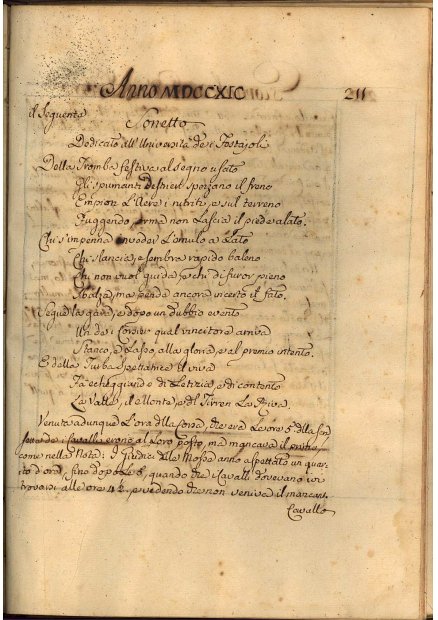 Anno MDCCXIC 211
il Seguente
Sonetto
Dedicato all'Università de i Tostajoli
Della Tromba festiva al segno usato
Gli spumanti destrieri sprezzano il freno
Empion L'Aere i nitriti, e sul terreno
Fuggendo, orma non Lascia il piede alato.
Chi s'impenna in veder L'emulo a Lato
Chi slancia, e sembra rapido baleno
Chi non vuol guida, e chi di furor pieno
Sbalza, ma pende ancora incerto il fato.
Segue la gara, e dopo un dubbio evento
Un de i Corsier qual vincitore arriva
Stanco, e Lasso, alla gloria, e al premio intento.
E della Turba spettatrice il viva
Fa echeggiando di Letizia, e di contento
La Valle, il Monte, e Il Tirren La Riva.
Venuta adunque L'ora della Corsa, che era Le ore 5 della
i Cavalli erono al Loro posto, ma mancava il
come nella Nota: i Giudici delle Mosse anno aspettato un quar-
to d'ora, sino dopo le 5, quando che i Cavalli dovevano
trovarsi alle ore 4½, e vedendo che non veniva il mancante
Cavallo